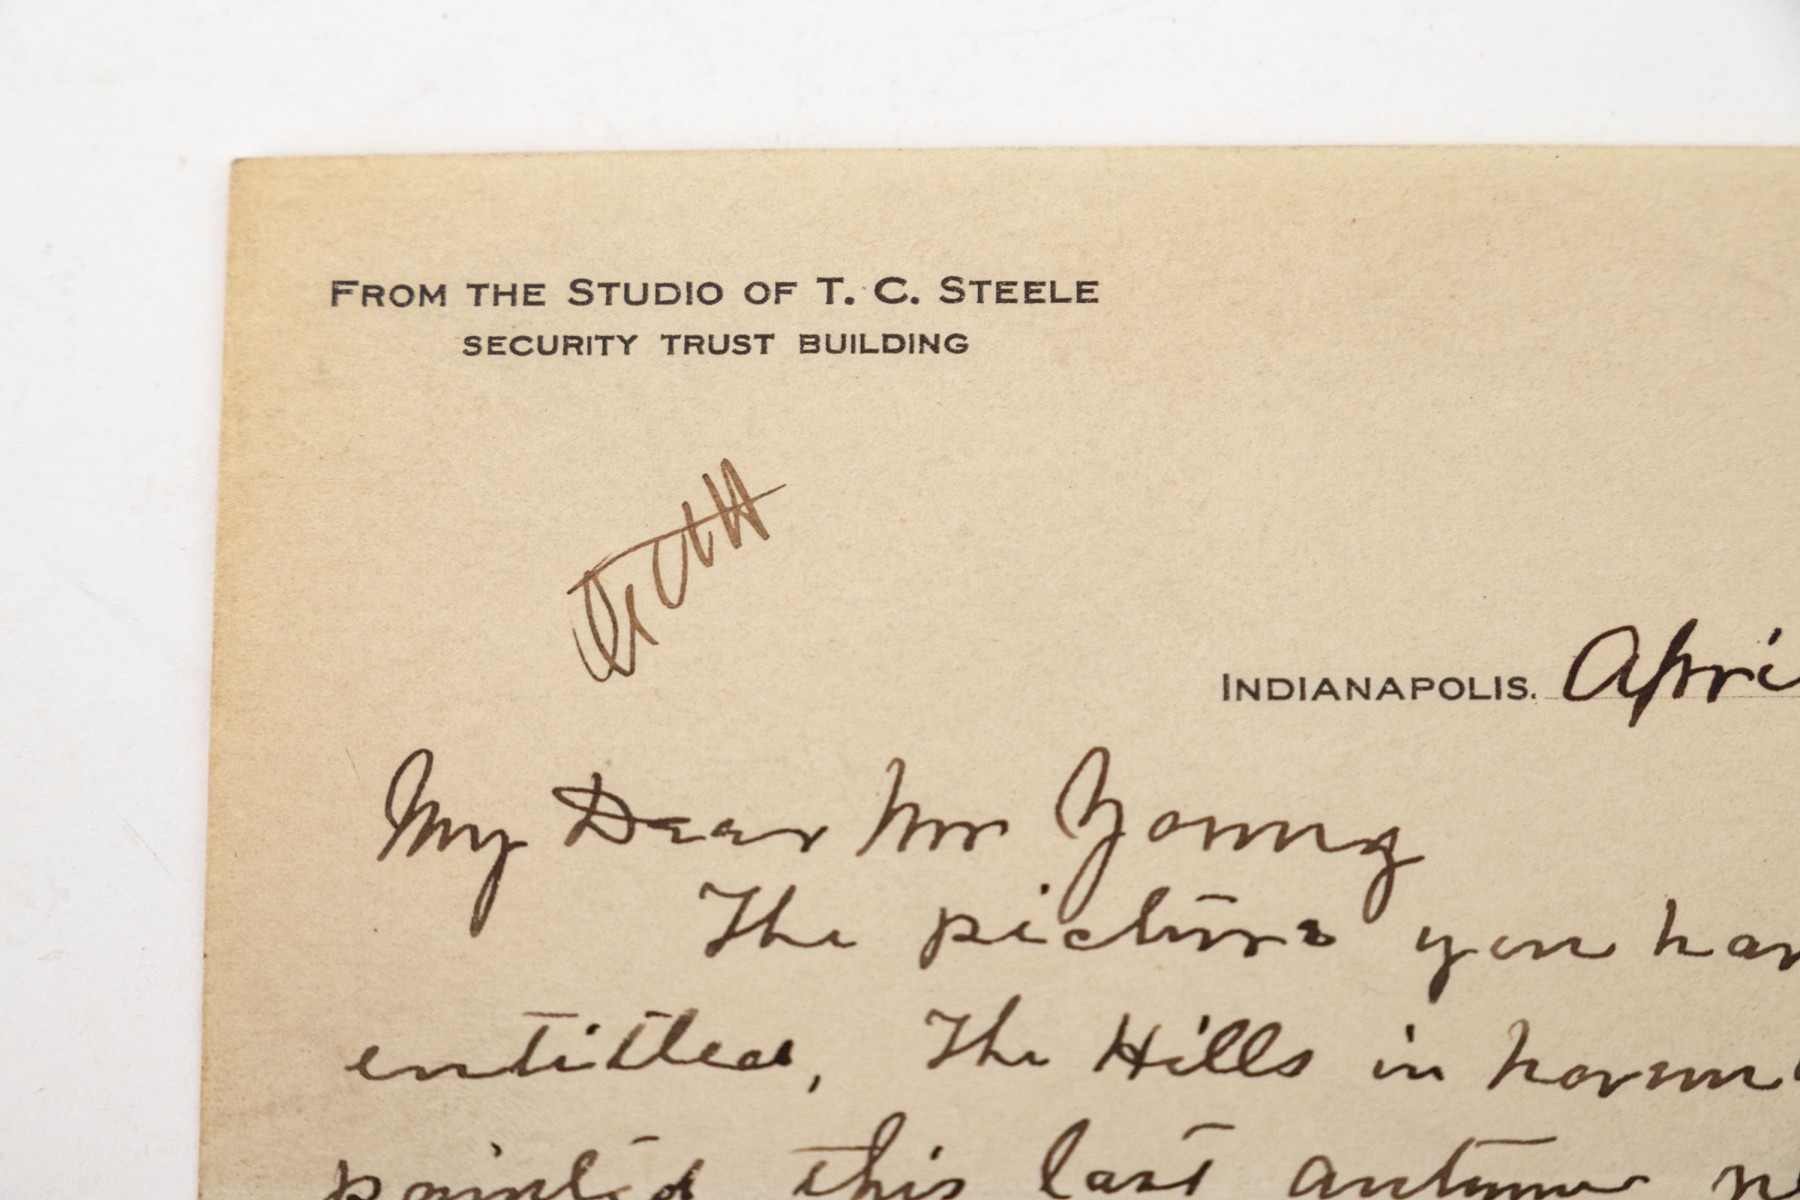 FROM THE STUDIO OF T. C. STEELE
SECURITY TRUST BUILDING
INDIANAPOLIS. Apri
My Dear Mr Young
The picture you hav
entitled, The Hills in
painted this last autumn